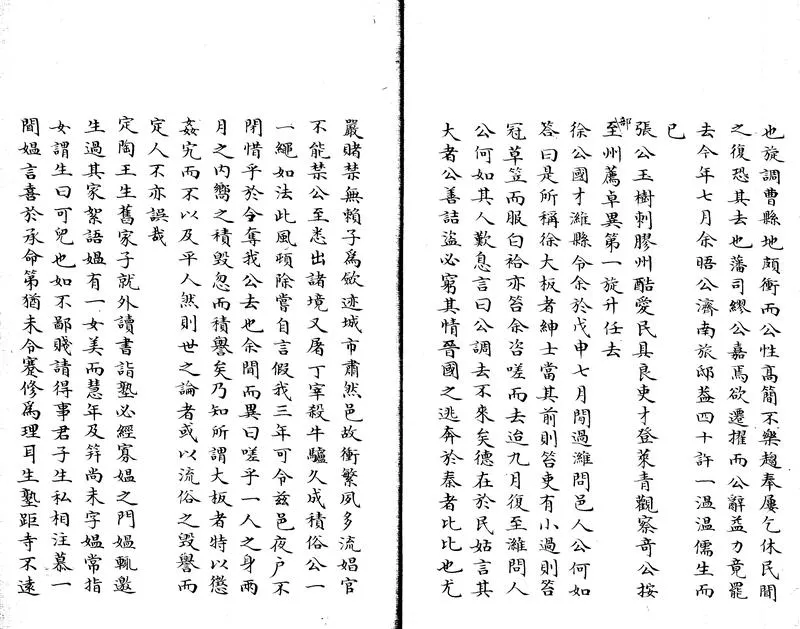 也旋調曹縣地頗衝而公性高簡不樂趨奉屢乞休民間
之復恐其去也藩司繆公嘉焉欲遷擢而公辭益力竟罷
去今年七月余晤公濟南旅邸葢四十許一温温儒生而
已
張公玉樹刺膠州酷愛民具良吏才登萊青觀察奇公按
部至州薦卓異第一旋升任去
徐公國才濰縣令余於戊申七月間過濰問邑人公何如
答曰是所稱徐大板者紳士當其前則笞吏有小過則笞
冠草笠而服白袷亦笞余咨嗟而去迨九月復至濰問人
公何如其人歎息言曰公調去不來矣德在於民姑言其
大者公善詰盜必窮其情晉國之逃奔於秦者比比也尤
嚴賭禁無賴子爲斂迹城市肅然邑故衝繁夙多流娼官
不能禁公至悉出諸境又屠丁宰殺牛驢久成積俗公一
一繩如法此風頓除嘗自言假我三年可令兹邑夜户不
閉惜乎於今奪我公去也余聞而異曰嗟乎一人之身兩
月之内嚮之積毀忽而積譽矣乃知所謂大板者特以懲
姦宄而不以及平人然則世之論者或以流俗之毀譽而
定人不亦誤哉
定陶王生舊家子就外讀書詣塾必經寡媪之門媪輒邀
生過其家絮語媪有一女美而慧年及筓尚未字媪常指
女謂生曰可兒也如不鄙賤請得事君子生私相注慕一
間媪言喜於承命第猶未令蹇修爲理耳生塾距寺不遠